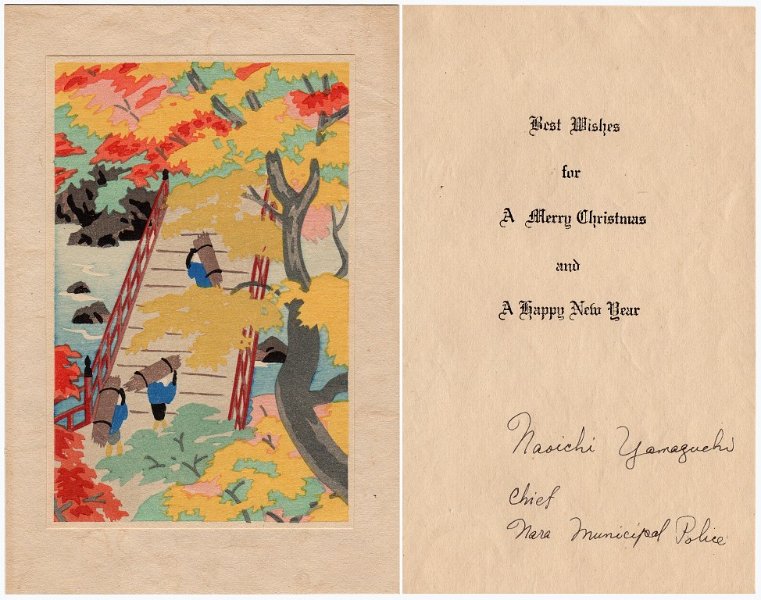 Best Wishes
for
A Merry Christmas
and
A Happy New Year
Naoichi Yamaguchi
Chief
Nara Municipal Police